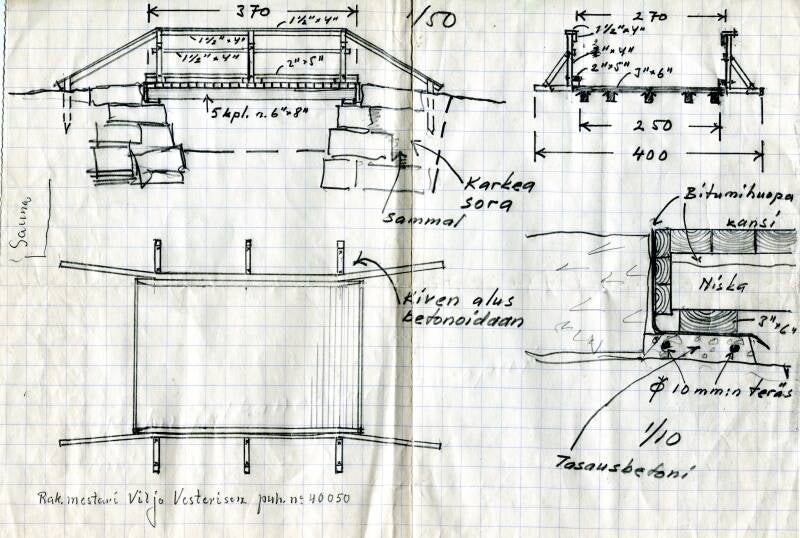 370
1/50
270
1½"×4"
1½"×4"
1½"×4"
2"×5"
5 kpl. n. 6"×8"
1½"×4"
2"×5"
3"×6"
250
400
Karkea
sora
sammal
Sauna
Bitumihuopa
kansi
Niska
3"×6"
Kiven alus
betonoidaan
10 mm:n teräs
1/10
Tasausbetoni
Rak.mestari Viljo Vesterinen puh. n:o 40050